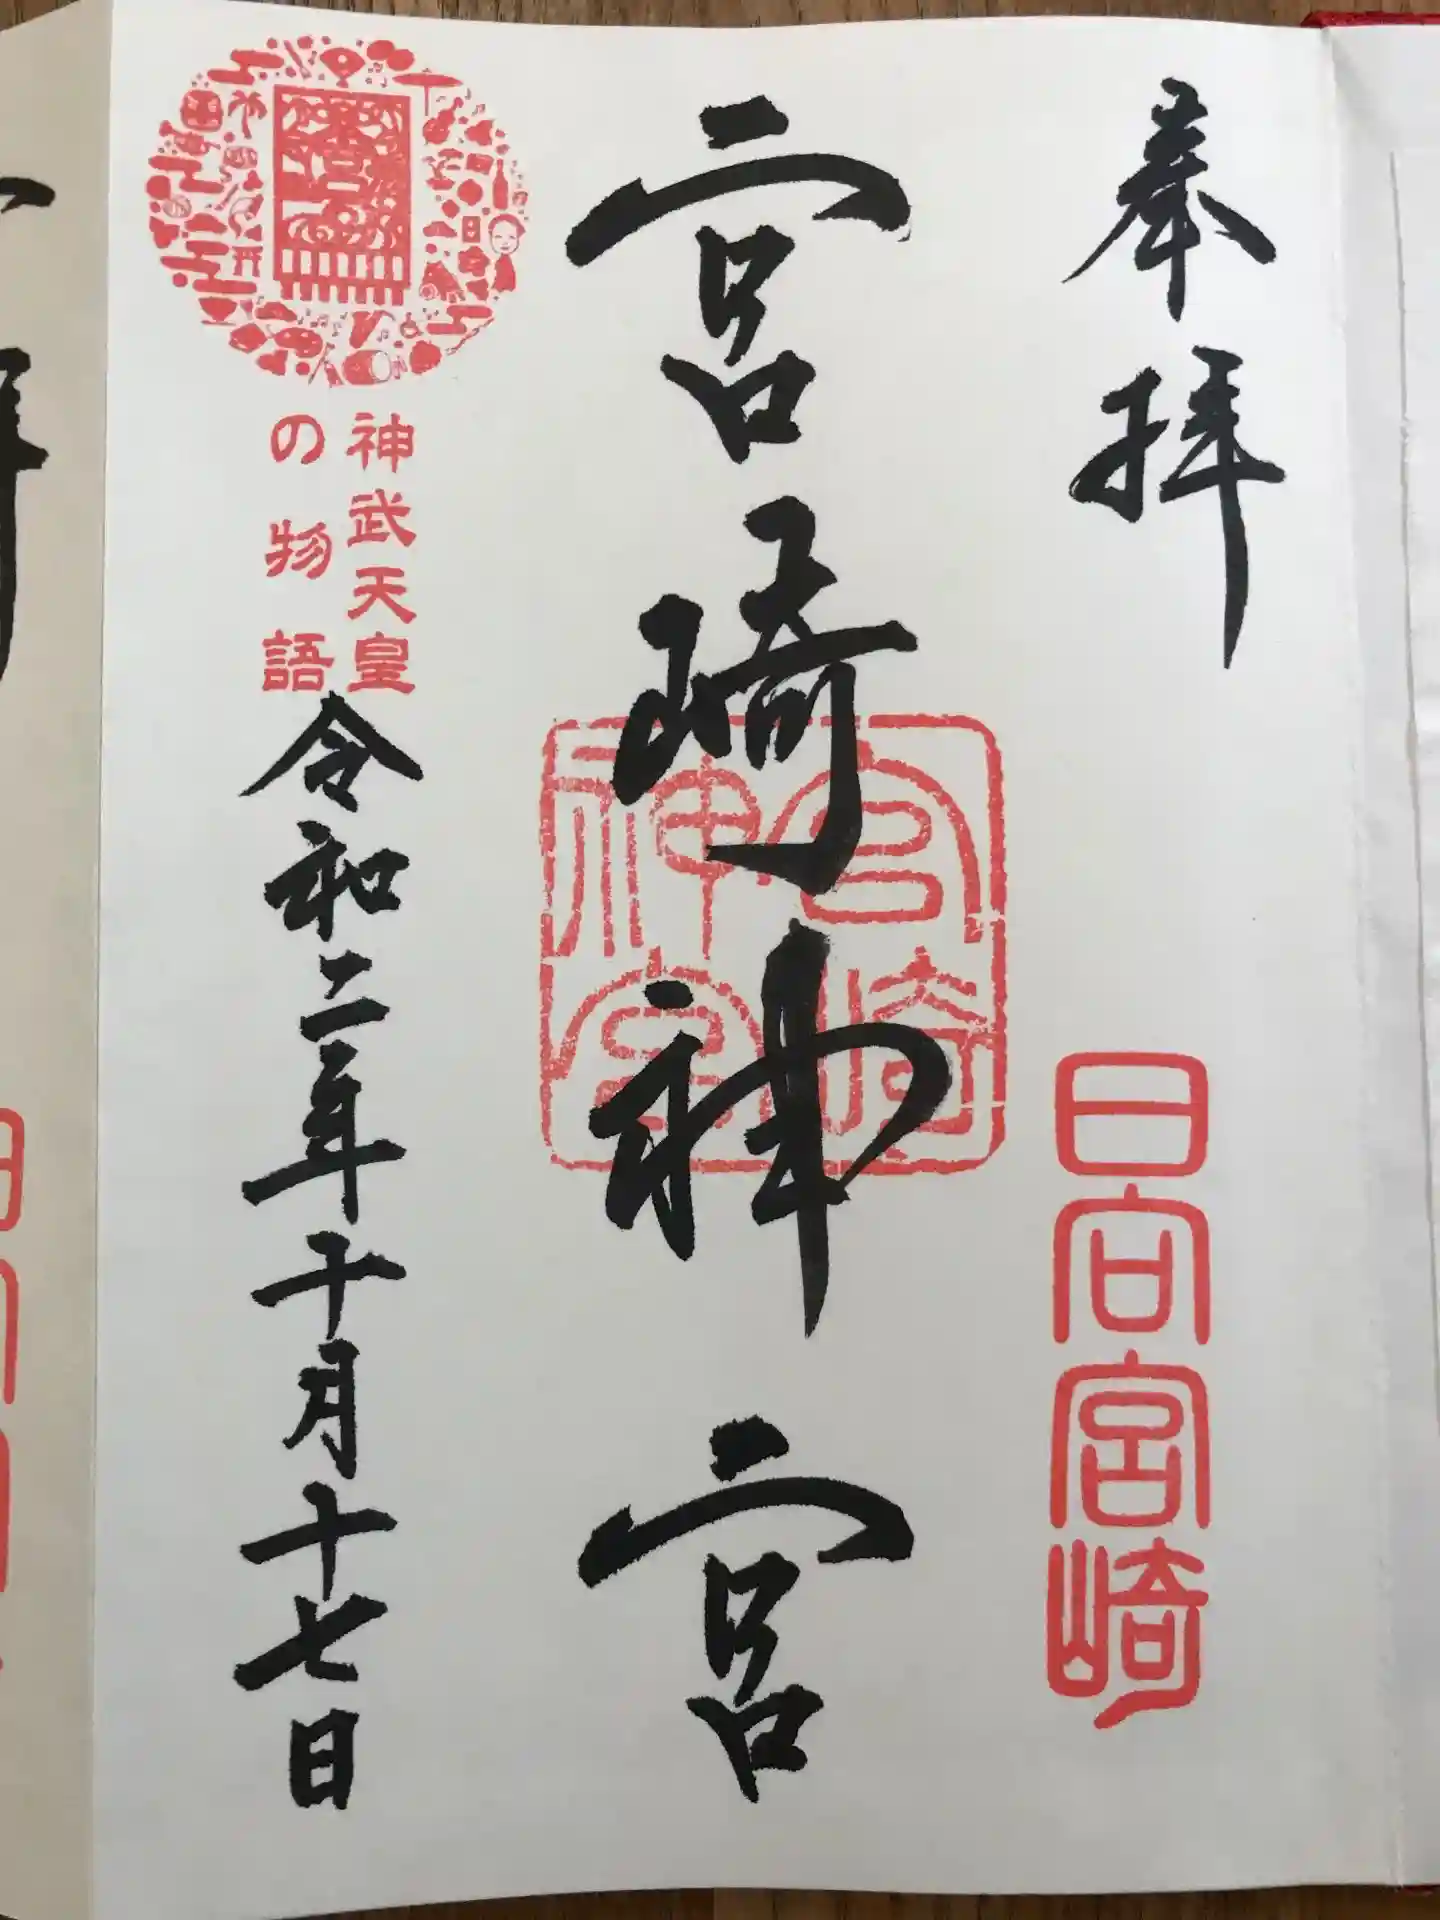 奉拝
日向宮崎
宮崎神宮
宮崎
神宮
神武天皇
の物語
令和二年十月十七日